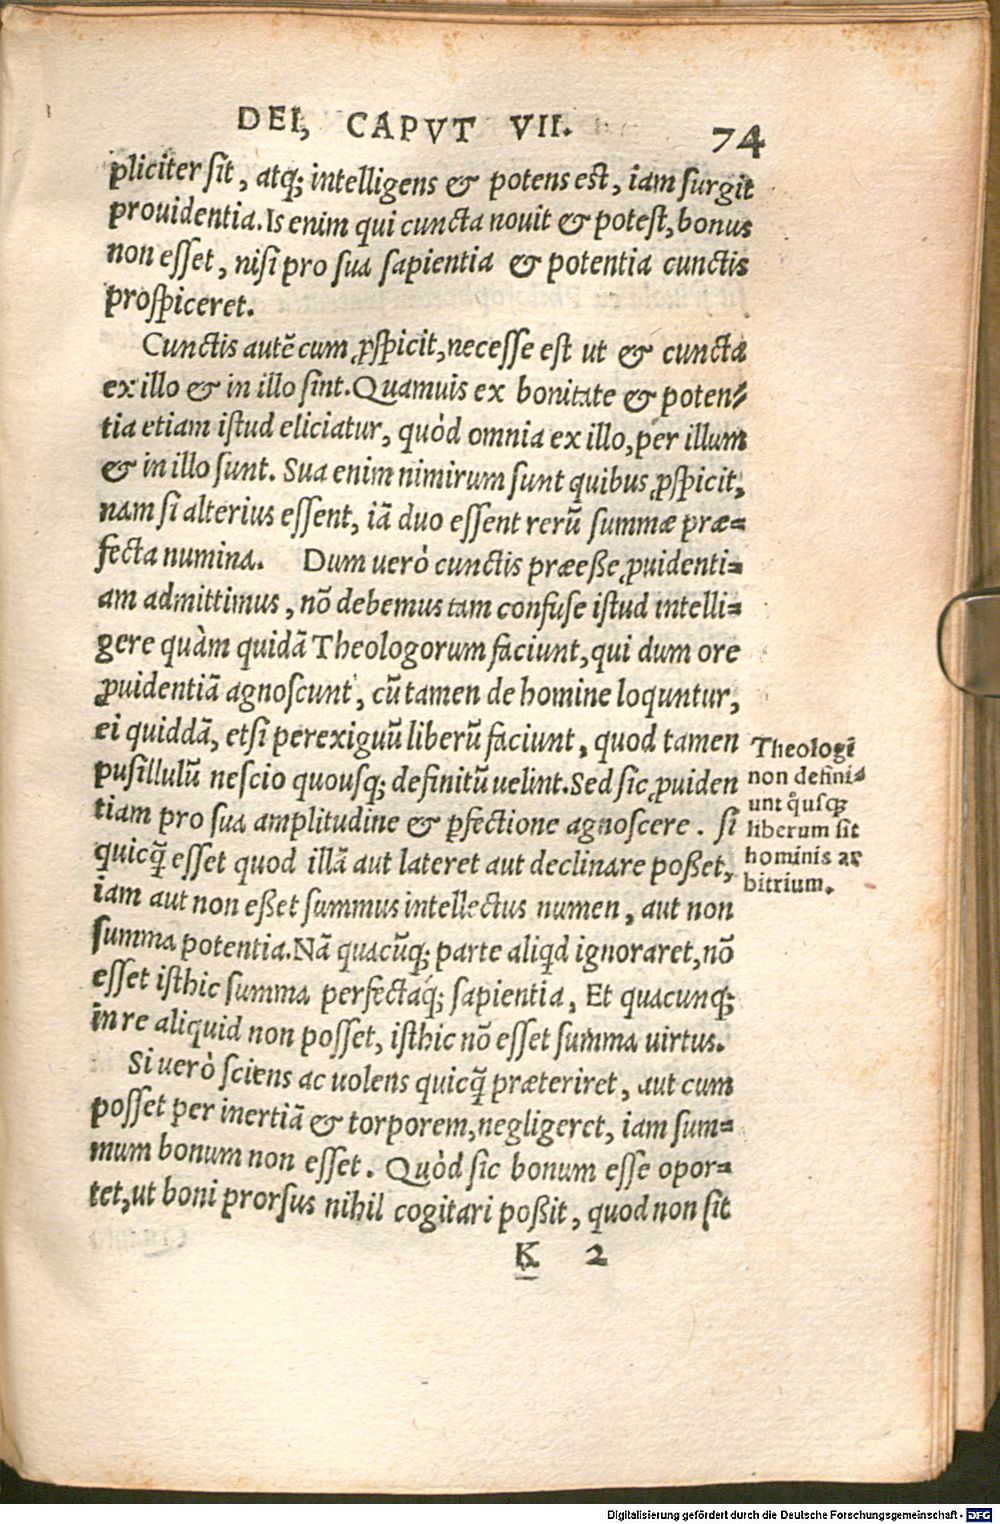 DEI, CAPVT VII. 74
pliciter sit, atq; intelligens & potens est, iam surgit
prouidentia. Is enim qui cuncta nouit & potest, bonus
non esset, nisi pro sua sapientia & potentia cunctis
prospiceret.
Cunctis autē cum ꝓspicit, necesse est ut & cuncta
ex illo & in illo sint. Quamuis ex bonitate & poten-
tia etiam istud eliciatur, quòd omnia ex illo, per illum
& in illo sunt. Sua enim nimirum sunt quibus ꝓspicit,
nam si alterius essent, iā duo essent rerū summæ præ=
fecta numina. Dum uerò cunctis præeße ꝓuidenti=
am admittimus, nō debemus tam confuse istud intelli=
gere quàm quidā Theologorum faciunt, qui dum ore
ꝓuidentiā agnoscunt, cū tamen de homine loquntur,
ei quiddā, etsi perexiguū liberū faciunt, quod tamen
pusillulū nescio quousq; definitū uelint. Sed sic ꝓuiden
tiam pro sua amplitudine & ꝑfectione agnoscere. si
quicq̄ esset quod illā aut lateret aut declinare poßet,
iam aut non eßet summus intellectus numen, aut non
summa potentia. Nā quacūq; parte aliqd ignoraret, nō
esset isthic summa perfectaq́; sapientia, Et quacunq;
in re aliquid non posset, isthic nō esset summa uirtus.
Si uerò sciens ac uolens quicq̄ præteriret, aut cum
posset per inertiā & torporem, negligeret, iam sum=
mum bonum non esset. Quòd sic bonum esse opor=
tet, ut boni prorsus nihil cogitari poßit, quod non sit
K 2
Theologē
non defini-
unt qͦusq;
liberum sit
hominis ar
bitrium.
Digitalisierung gefördert durch die Deutsche Forschungsgemeinschaft - DFG